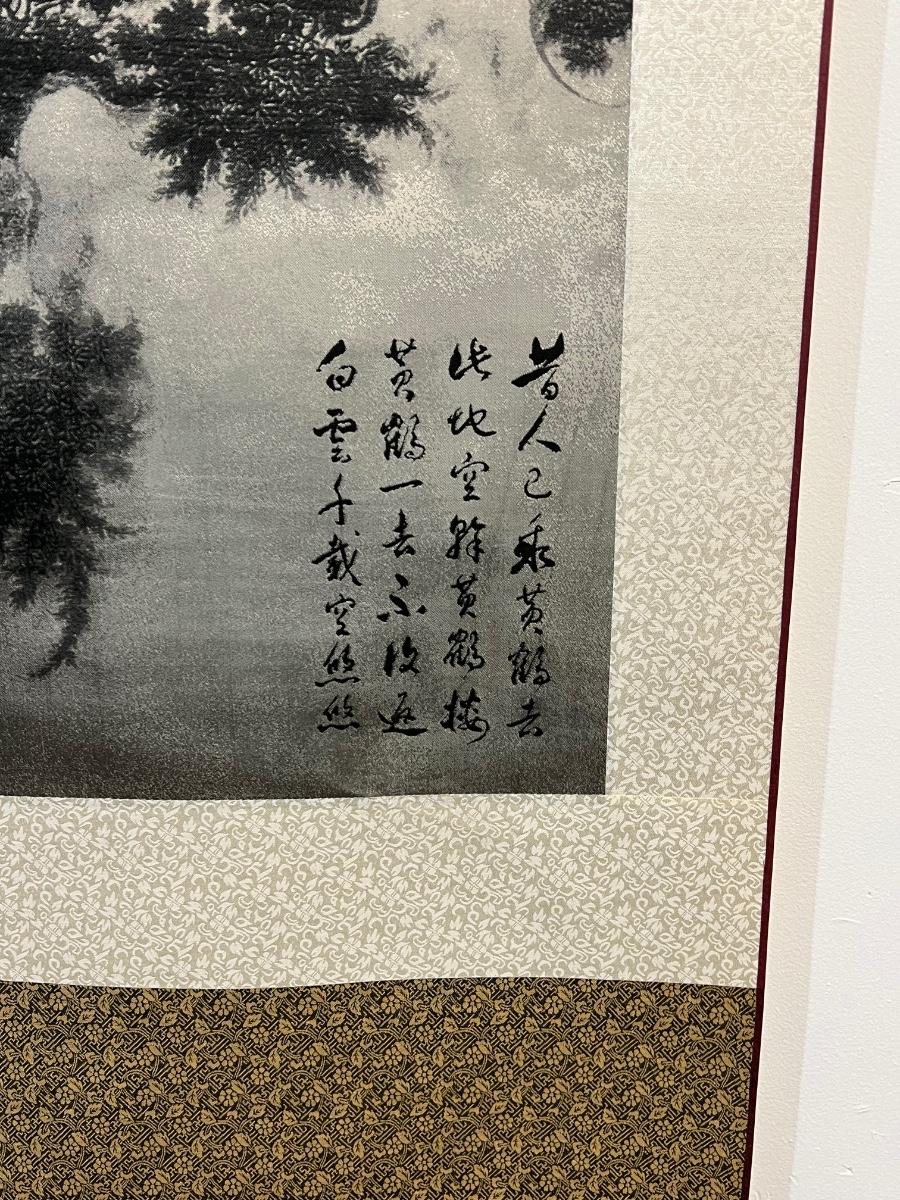 昔人已乘黄鶴去
此地空餘黄鶴楼
黄鶴一去不復返
白雲千載空悠悠